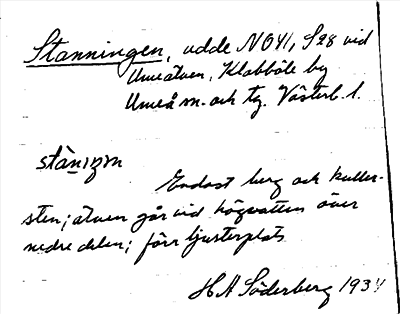 Stanningen, udde NO41, S28 vid
Umeälven, Klabböle by
Umeå sn. och tg. Västerb. l.
Endast berg och kuller-
sten; älven går vid högvatten över
nedre delen; förr ljusterplats
H A Söderberg 1934